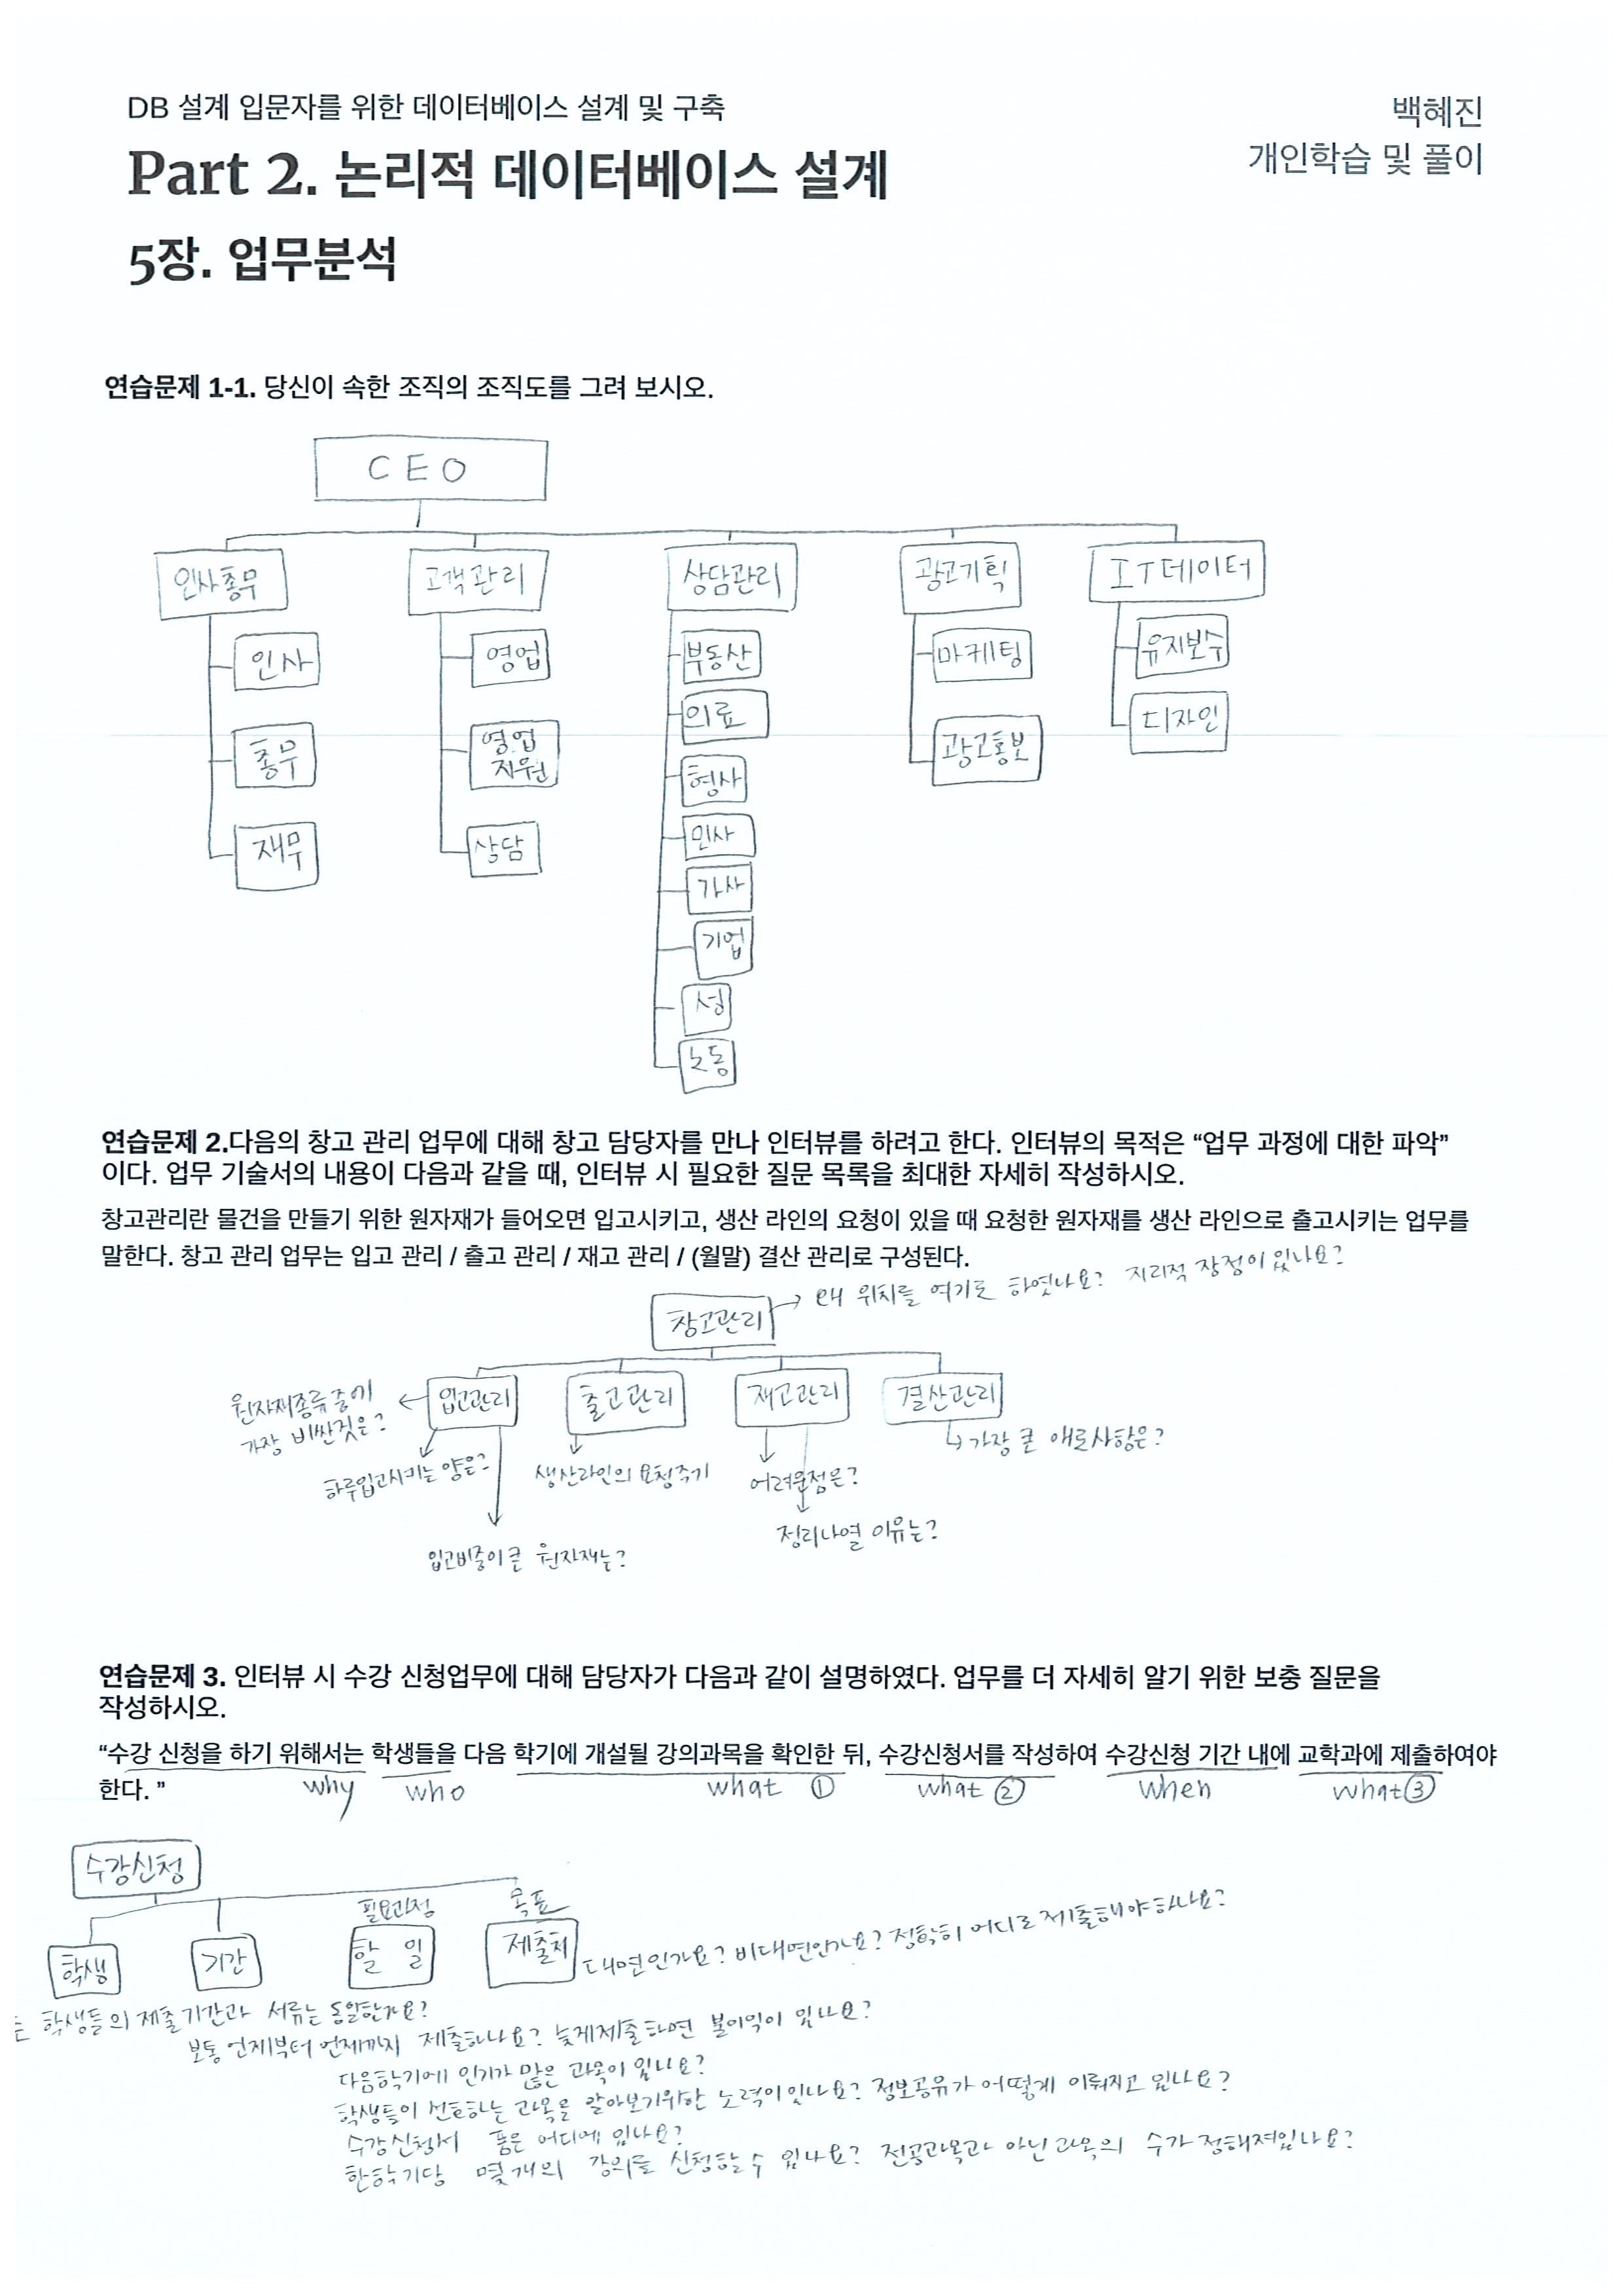 DB 설계 입문자를 위한 데이터베이스 설계 및 구축
백혜진
Part 2. 논리적 데이터베이스 설계
개인학습 및 풀이
5장. 업무분석
연습문제 1-1. 당신이 속한 조직의 조직도를 그려 보시오.
CEO
인사총무
고객관리
상담관리
광고기획
IT데이터
인사
총무
재무
영업
영업
지원
상담
부동산
의료
형사
민사
가사
기업
성
노동
마케팅
광고홍보
유지보수
디자인
연습문제 2.다음의 창고 관리 업무에 대해 창고 담당자를 만나 인터뷰를 하려고 한다. 인터뷰의 목적은 “업무 과정에 대한 파악”
이다. 업무 기술서의 내용이 다음과 같을 때, 인터뷰 시 필요한 질문 목록을 최대한 자세히 작성하시오.
창고관리란 물건을 만들기 위한 원자재가 들어오면 입고시키고, 생산 라인의 요청이 있을 때 요청한 원자재를 생산 라인으로 출고시키는 업무를
말한다. 창고 관리 업무는 입고 관리 / 출고 관리 / 재고 관리 / (월말) 결산 관리로 구성된다.
창고관리
왜 위치를 여기로 하였나요? 지리적 장점이 있나요?
입고관리
출고관리
재고관리
결산관리
원자재종류중에
가장 비싼것은?
하루입고시키는 양은?
입고비중이큰 원자재는?
생산라인의 요청주기
어려운점은?
정리나열 이유는?
가장 큰 애로사항은?
연습문제 3. 인터뷰 시 수강 신청업무에 대해 담당자가 다음과 같이 설명하였다. 업무를 더 자세히 알기 위한 보충 질문을
작성하시오.
“수강 신청을 하기 위해서는 학생들을 다음 학기에 개설될 강의과목을 확인한 뒤, 수강신청서를 작성하여 수강신청 기간 내에 교학과에 제출하여야
한다. ”
why who what ① what ② when what③
수강신청
학생
기간
필요과정
할 일
목표
제출처
대면인가요? 비대면인가요? 정확히 어디로 제출해야하나요?
학생들의 제출기간과 서류는 동일한가요?
보통 언제부터 언제까지 제출하나요? 늦게제출하면 불이익이 있나요?
다음학기에 인기가 많은 과목이 있나요?
학생들이 선호하는 과목을 알아보기위한 노력이있나요? 정보공유가 어떻게 이뤄지고 있나요?
수강신청서 폼은 어디에 있나요?
한학기당 몇개의 강의를 신청할수 있나요? 전공과목과 아닌과목의 수가 정해져있나요?